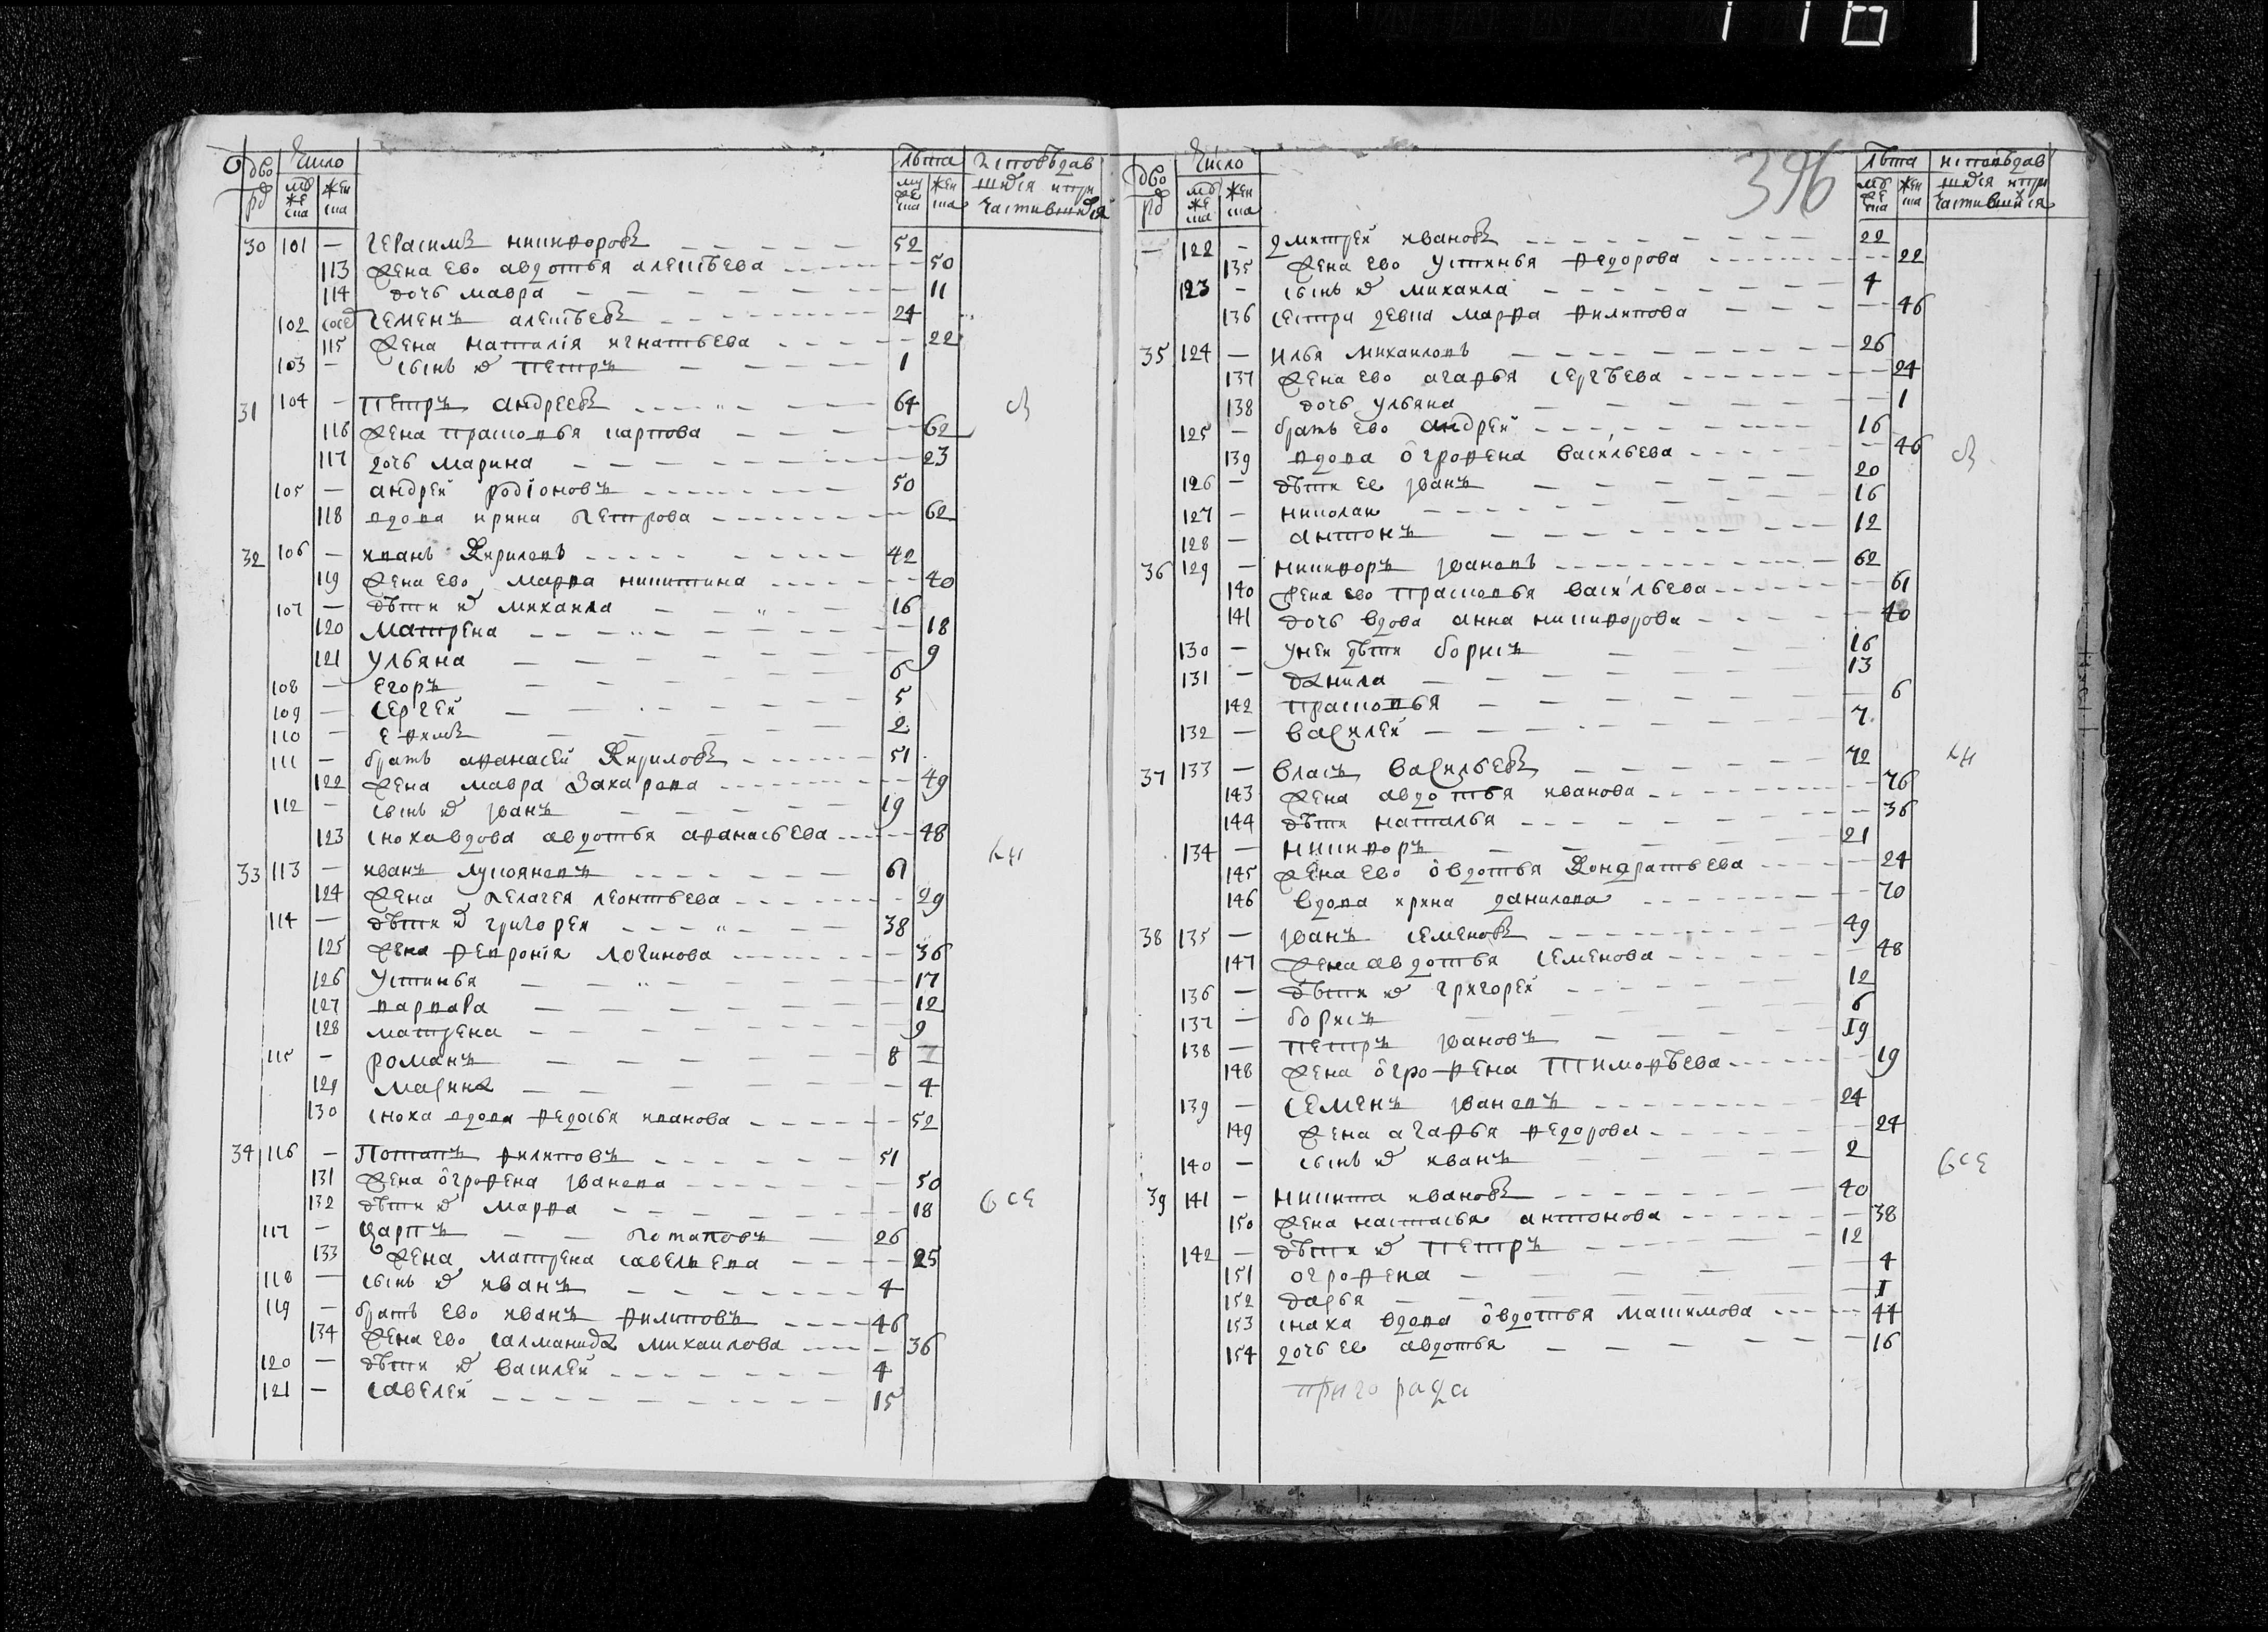 дво ра Число лѣта исповѣдав
муже ска жен ска муже ска жен ска шиися и при
частившиися
30 101 — герасимъ никифоровъ 52
113 жена ево авдотья алексѣева 50
114 дочь мавра 11
102 сосед семенъ алексѣевъ 24
115 жена наталія игнатьева 22
103 — сынъ их петръ 1
31 104 — Петръ андреевъ 64
116 жена прасковья карпова 62
117 дочь марина 23
105 — андрей родіоновъ 50
118 вдова ирина петрова 62
32 106 — иванъ кириловъ 42
119 жена ево марфа никитина 40
107 — дѣти их михаила 16
120 матрена 18
121 ульяна 9
108 — егоръ 6
109 — сергей 5
110 — ефимъ 2
111 — братъ афанасей кириловъ 51
122 жена мавра захарова 49
112 — сынъ их іванъ 19
123 сноха вдова авдотья афанасьева 48
33 113 — иванъ лукояновъ 61
124 жена пелагея леонтьева 29
114 — дѣти их григореи 38
125 жена февронія логинова 36
126 устинья 17
127 варвара 12
128 матрена 9
115 — романъ 8
129 марина 4
130 сноха вдова федосья иванова 52
34 116 — Потапъ филиповъ 51
131 жена огрофена іванова 50
132 дѣти их марфа 18
117 — карпъ потаповъ 26
133 жена матрена савельева 25
118 — сынъ их иванъ 4
119 — братъ ево иванъ филиповъ 46
134 жена ево салманида михаилова 36
120 — дѣти их василей 4
121 — савелеи 15
св
кн
все
396
дво ра Число лѣта исповѣдав
муже ска жен ска муже ска жен ска шиися и при
частившиися
— 122 — дмитрей ивановъ 22
135 жена ево устинья федорова 22
123 — сынъ их михаила 4
136 сестра девка марфа филипова 46
35 124 — илья михаиловъ 26
137 жена ево агафья сергѣева 24
138 дочь ульяна 1
125 — братъ ево андреи 16
139 вдова огрофена васильева 46
126 — дѣти ее іванъ 20
127 — николаи 16
128 — антонъ 12
36 129 — никифоръ івановъ 62
140 жена ево прасковья васильева 61
141 дочь вдова анна никифорова 40
130 — у неи дѣти борисъ 16
131 — данила 13
142 прасковья 6
132 — василей 7
37 133 — власъ васильевъ 72
143 жена авдотья иванова 76
144 дѣти наталья 36
134 — никифоръ 21
145 жена ево овдотья кондратьева 24
146 вдова ирина данилова 70
38 135 — іванъ семеновъ 49
147 жена авдотья семенова 48
136 — дѣти их григорей 12
137 — борисъ 6
138 — петръ івановъ 19
148 жена огрофена тимофѣева 19
139 — семенъ івановъ 24
149 жена агафья федорова 24
140 — сынъ их иванъ 2
39 141 — никита ивановъ 40
150 жена настасья антонова 38
142 — дѣти их петръ 12
151 огрофена 4
152 дарья 1
153 снаха вдова овдотья макимова 44
154 дочь ее авдотья 16
пригорада
св
кн
все